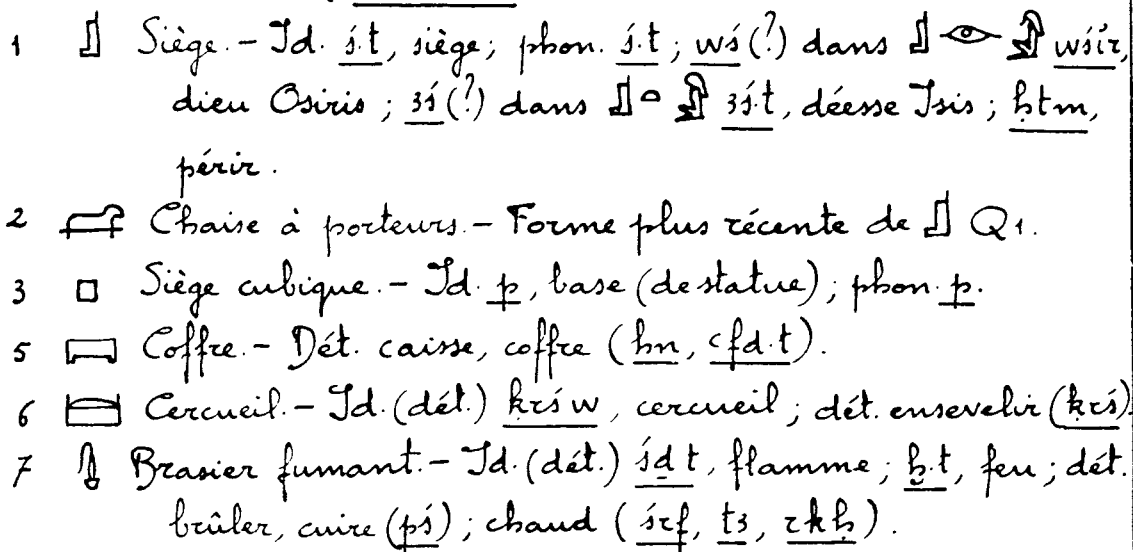 1 𓊨 Siège. – Id. ś.t, siège; phon. ś.t; wś(?) dans 𓊨𓁹𓀭 wśir,
dieu Osiris; ꜣś(?) dans 𓊨𓏏𓁐 ꜣś.t, déesse Isis; ḥtm,
périr.
2 𓊩 Chaise à porteurs. – Forme plus récente de 𓊨 Q1.
3 𓊪 Siège cubique. – Id. p, base (de statue); phon. p.
5 𓊬 Coffre. – Dét. caisse, coffre (hn, ꜥfd.t).
6 𓊭 Cercueil. – Id. (dét.) ḳrś w, cercueil; dét. ensevelir (ḳrś).
7 𓊮 Brasier fumant. – Id. (dét.) śḏ t, flamme; ḫ.t, feu; dét.
brûler, cuire (pś); chaud (śrf, tꜣ, rkḥ).